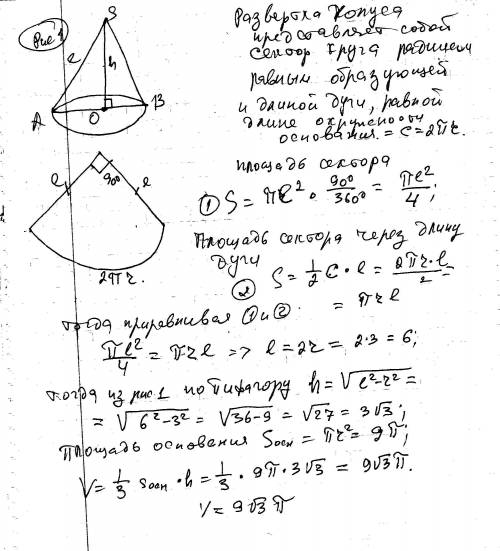 Рис 1
S
l
h
A
O
B
Развертка конуса
представляет собой
сектор круга радиусом
равным образующей
и длиной дуги, равной
длине окружности
основания. = C = 2πr.
l
90°
l
2πr.
площадь сектора
① S = πl² · 90°/360° = πl²/4;
Площадь сектора через длину
дуги
② S = 1/2 C · l = 2πr·l/2 =
= πrl
тогда приравнивая ① и ②
πl²/4 = πrl => l = 2r = 2·3 = 6;
тогда из рис.1 по Пифагору h = √l²-r² =
= √6²-3² = √36-9 = √27 = 3√3;
Площадь основания Sосн = πr² = 9π;
V = 1/3 Sосн · h = 1/3 · 9π · 3√3 = 9√3π.
V = 9√3 π